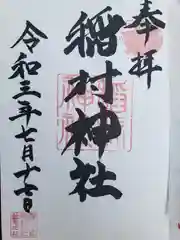 奉拝
稲村神社
令和三年七月十七日